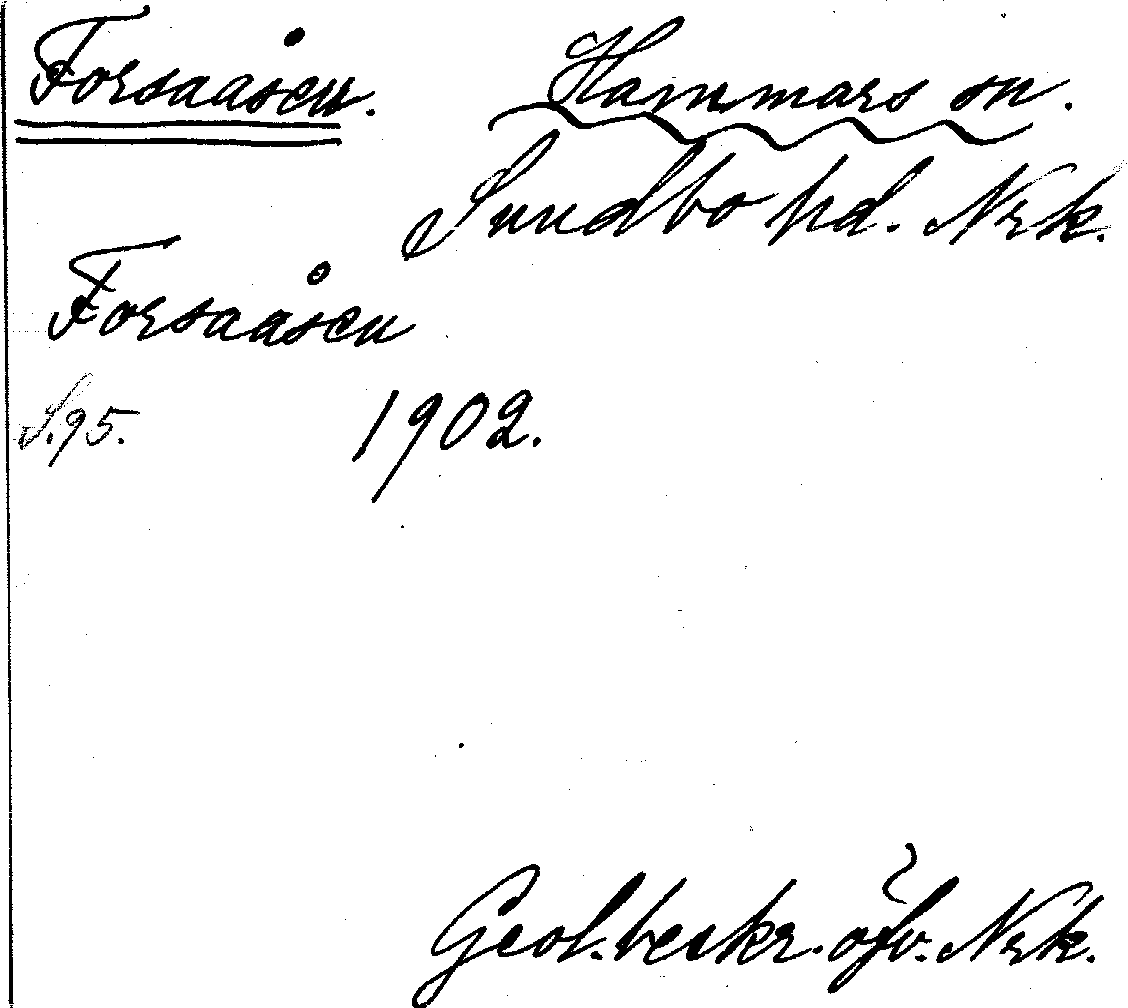 Forsaåsen. Hammars sn.
Sundbo hd. Nrk.
Forsaåsen
S.95. 1902.
Geol. beskr. öfv. Nrk.